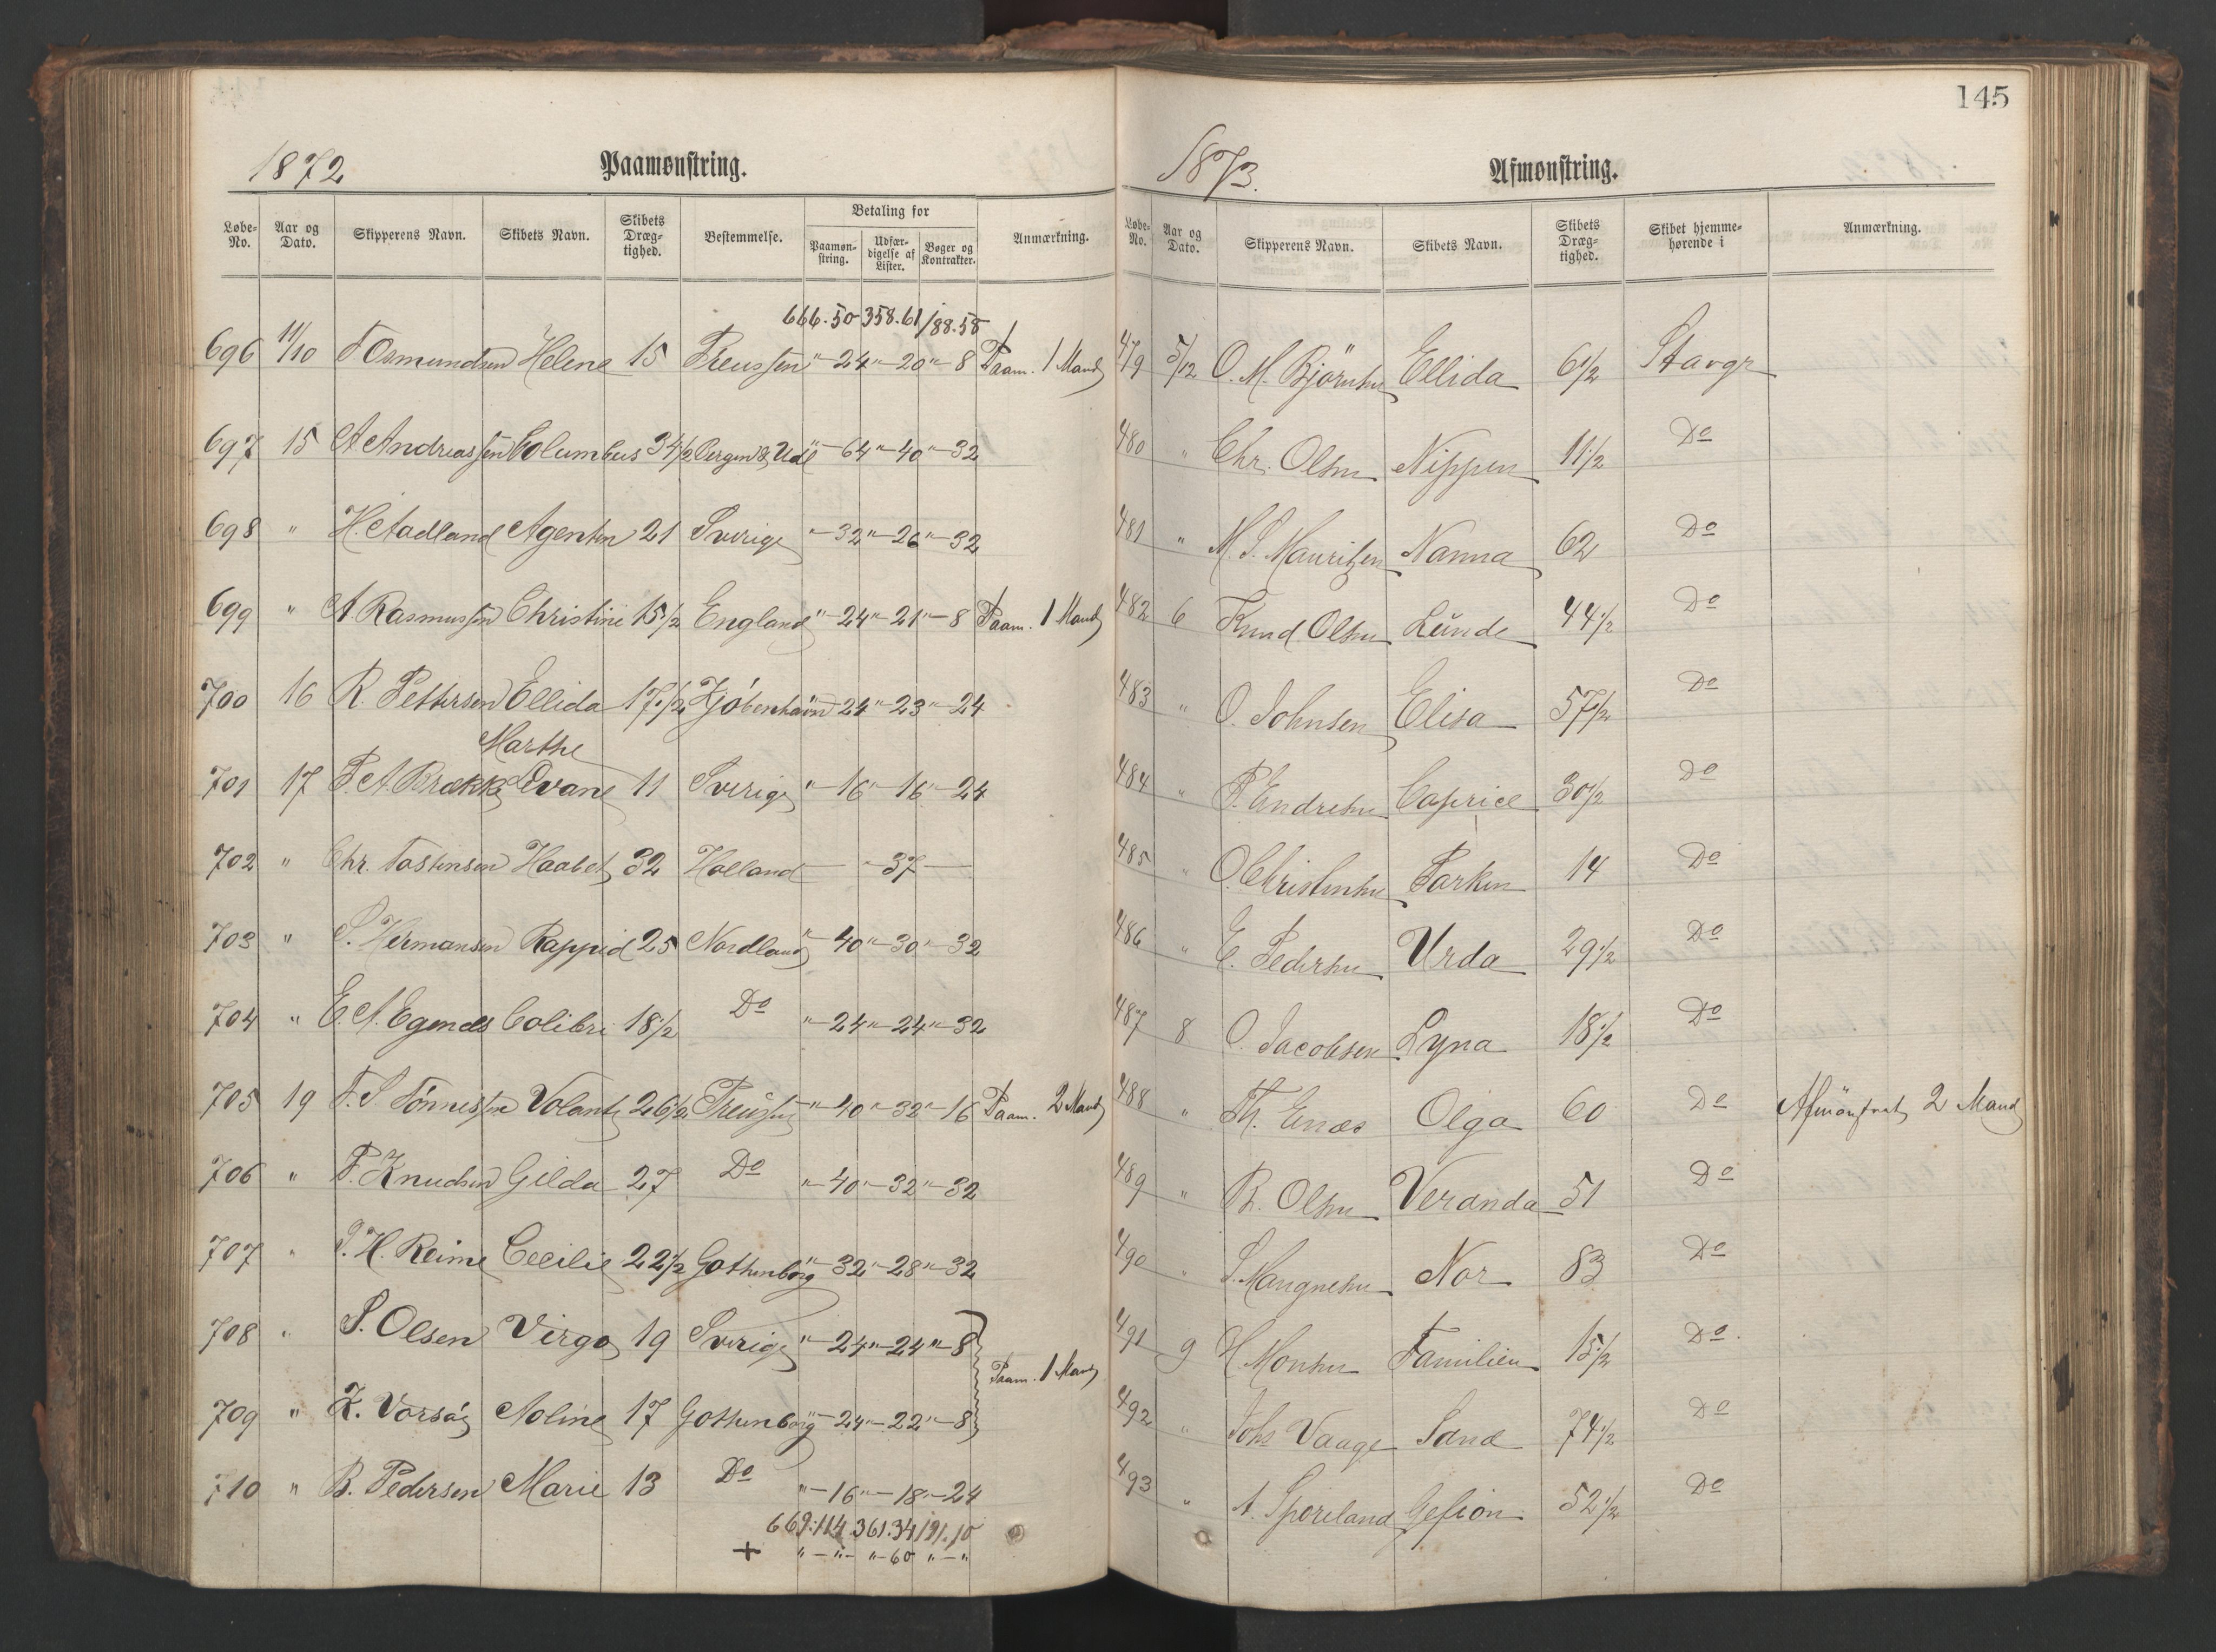 145
1872 Paamønstring.
Løbe-No. Aar og Dato. Skipperens Navn. Skibets Navn. Skibets Dræg-tighed. Bestemmelse. Betaling for Paamøn-string. Udfær-digelse af Lister. Bøger og Kontrakter. Anmærkning.
666.50 358.61 188.58
696 11/10 T. Osmundsen Helene 15 Preussen "-24 "-20 "-8 Paam. 1 Mand
697 15 A Andreassen Columbus 34 1/2 Bergen & Udl "-64 "-40 "-32
698 " H. Aadland Agenten 21 Sverige "-32 "-26 "-32
699 " A. Rasmussen Christine 15 1/2 England "-24 "-21 "-8 Paam. 1 Mand
700 16 R. Pettersen Ellida 17 1/2 Kjøbenhavn "-24 "-23 "-24
Marthe
701 17 T. A. Brekke Ovane 11 Sverige "-16 "-16 "-24
702 " Chr. Tostensen Haabet 32 Holland "-37
703 " S. Hermansen Rappid 25 Nordland "-40 "-30 "-32
704 " E. A. Egenes Colibri 18 1/2 Do "-24 "-24 "-32
705 19 T. S. Tönnessen Volante 26 1/2 Preussen "-40 "-32 "-16 Paam. 2 Mand
706 " T. Knudsen Gilda 27 Do "-40 "-32 "-32
707 " H. Reime Cecilie 22 1/2 Gothenborg "-32 "-28 "-32
708 " S. Olsen Virgo 19 Sverige "-24 "-24 "-8
Paam. 1 Mand
709 " K. Vorsøe Noline 17 Gothenborg "-24 "-22 "-8
710 " B. Pedersen Marie 13 Do "-16 "-18 "-24
669.114 361.34 191.10
+ "-"- "-60 "-"
1873. Afmønstring.
Løbe-No. Aar og Dato. Skipperens Navn. Skibets Navn. Skibets Dræg-tighed. Skibet hjemme-hørende i Anmærkning.
479 5/12 O. M. Björnsen Ellida 61/2 Stavgr
480 " Chr. Olsen Nippen 11 1/2 Do
481 " M. S. Mauritzen Nanna 62 Do
482 6 Knud Olsen Lunde 44 1/2 Do
483 " O. Johnsen Elisa 57 1/2 Do
484 " P. Endresen Caprice 30 1/2 Do
485 " O. Christensen Parken 14 Do
486 " E. Pedersen Urda 29 1/2 Do
487 8 O. Jacobsen Lyna 18 1/2 Do
488 " Th. Enæs Olga 60 Do Afmönstret 2 Mand
489 " B. Olsen Veranda 51 Do
490 " S. Mangnesen Nor 83 Do
491 9 H Monsen Familien 15 1/2 Do.
492 " Johs Vaage Sand 74 1/2 Do
493 " A. Sporeland Gefion 52 1/2 Do